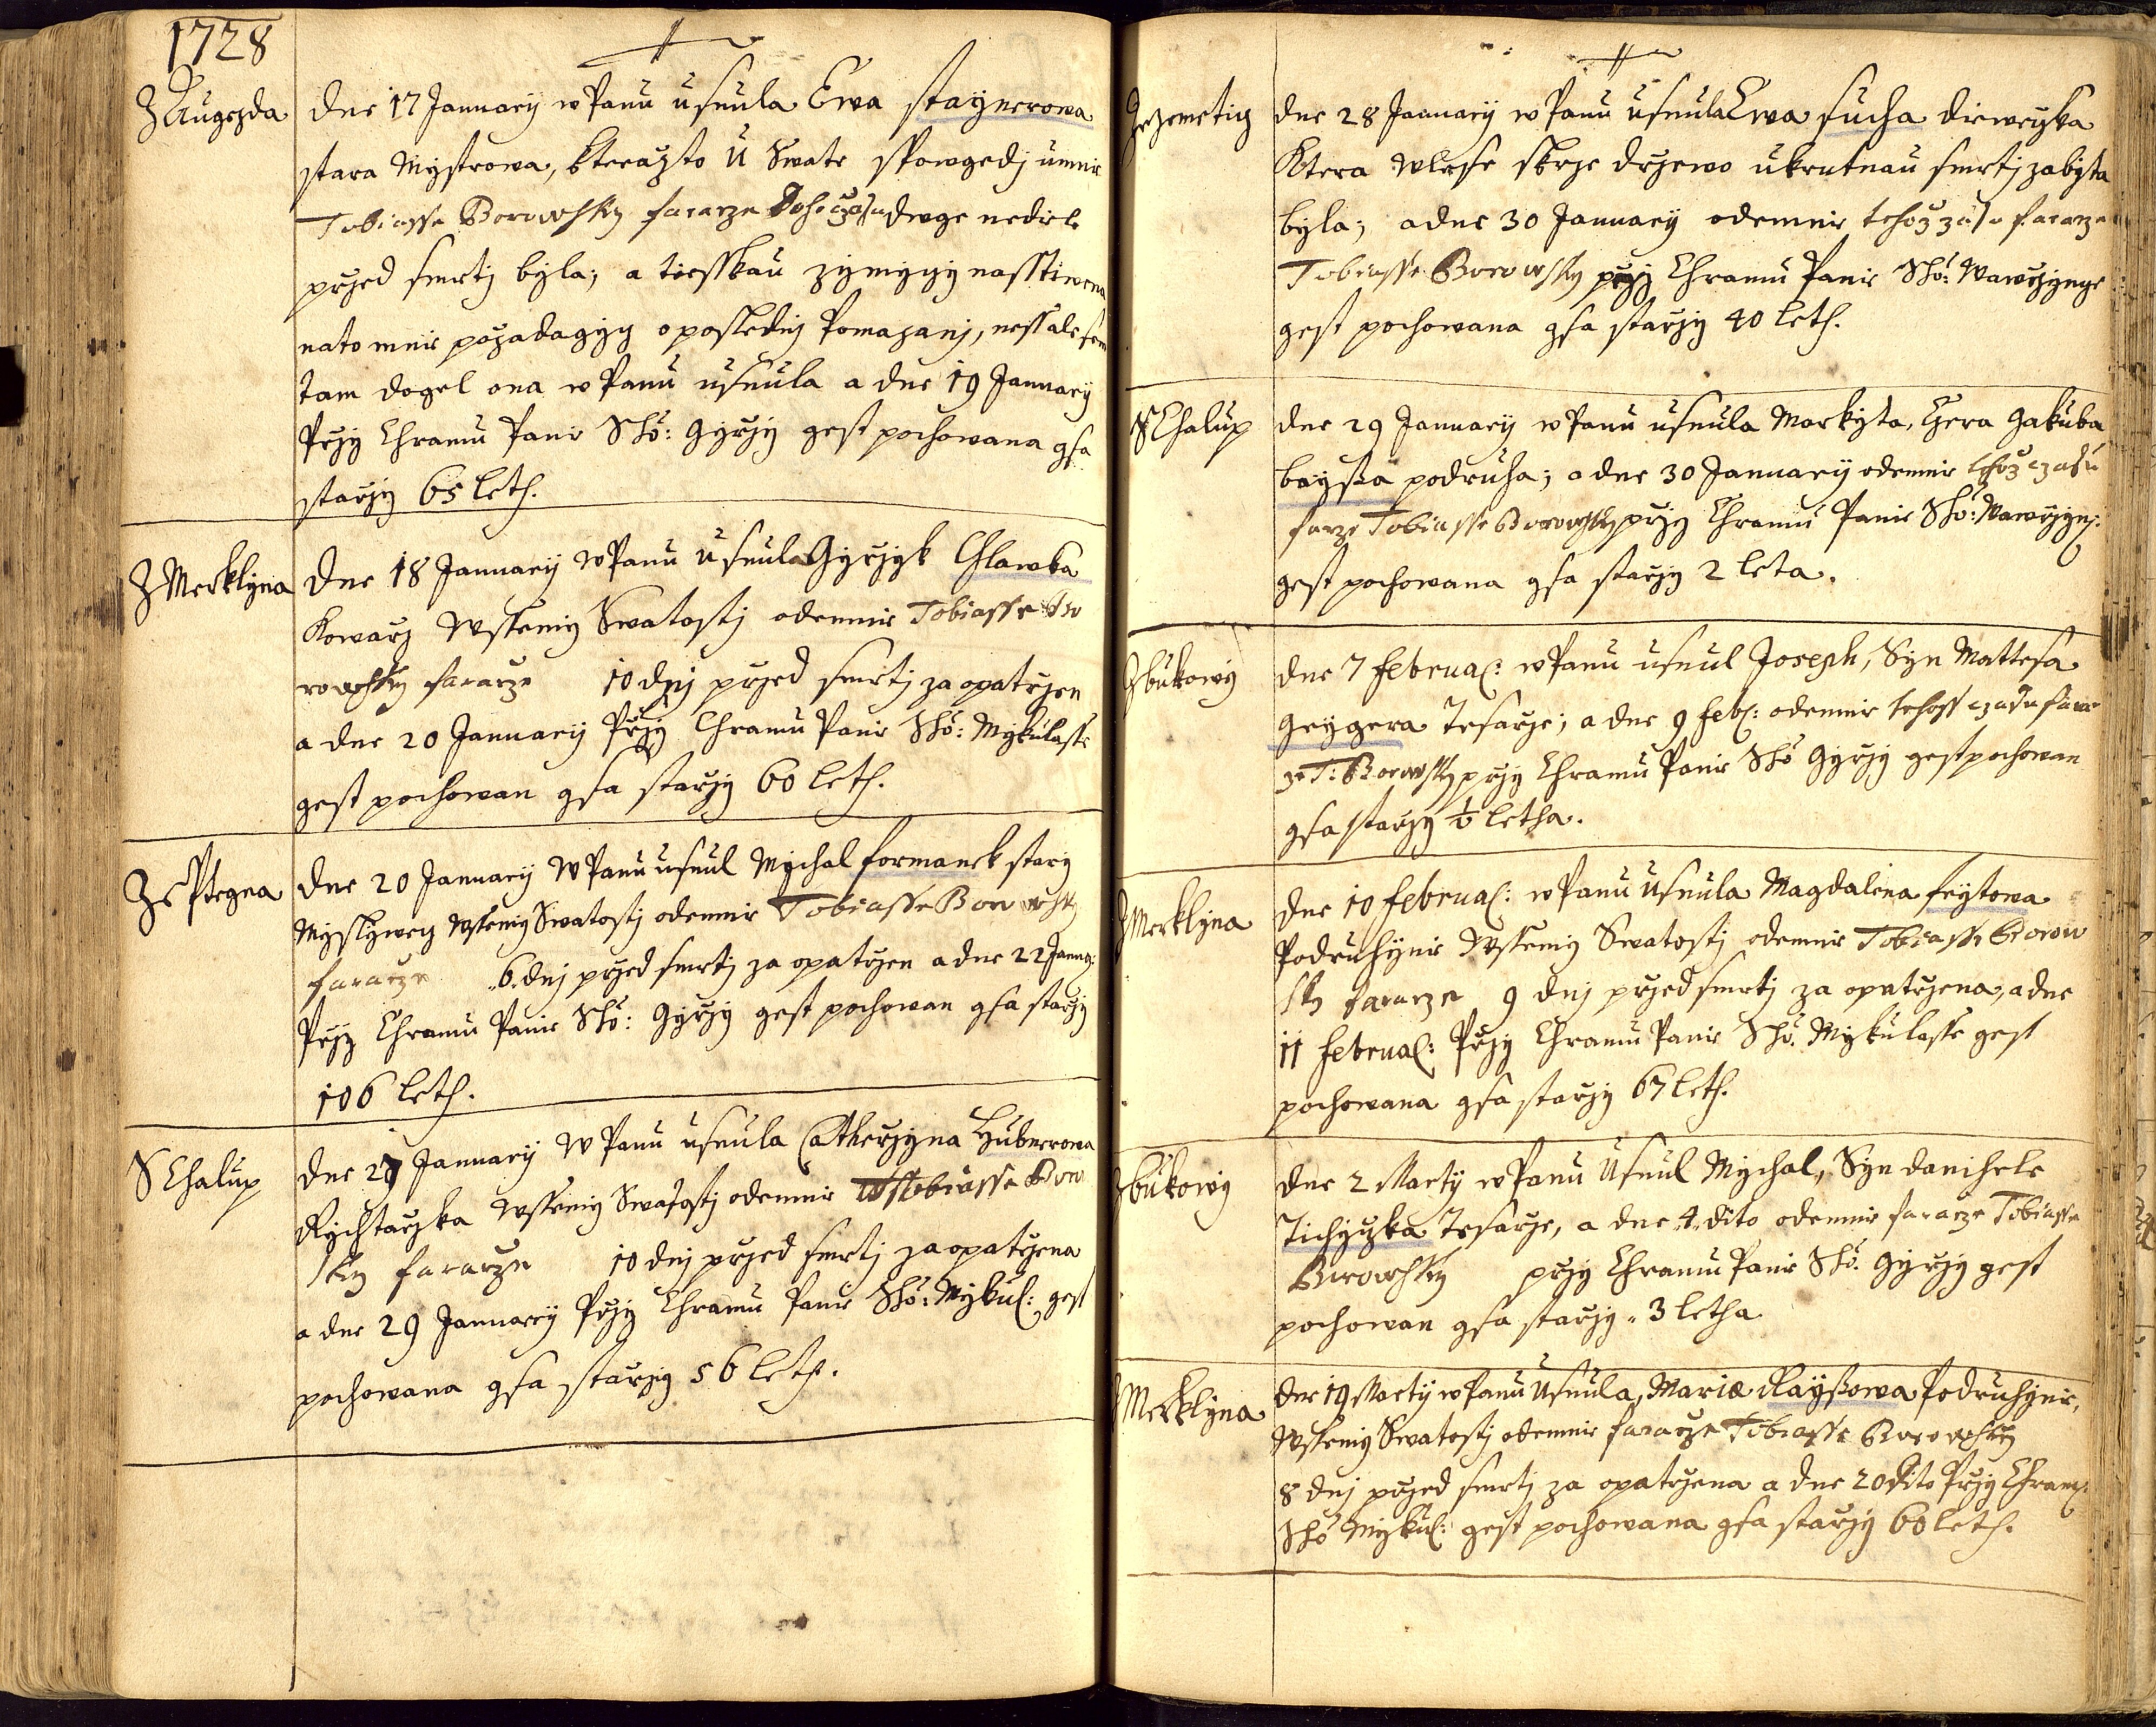 1728
Z Augezda
dne 17 January w Panu usnula Ewa staynerowa
stara Mystrowa, kterazto u Swate spowgedj u mnie
Tobiasse Borowsky fararze toho czasu dwge nediele
przed smrtj byla; a tiesskau zymnyczy nasstiwena
nato mnie pozadagycz o posledny Pomazanj, nessel sem
tam dogel ona w Panu usnula a dne 19 January
Przy Chramu Panie Sho: Gyrzy gest pochowana gsa
starzy 65 leth.
Z Merklyna
dne 18 January w Panu usnul Gyrzyk Hlawka
Kowarz Wssemy Swatostj odemnie Tobiasse Bo
rowsky fararze 10 dnj przed smrtj za opatrzen
a dne 20 January Przy Chramu Panie Sho: Mykulasse
gest pochowan gsa starzy 60 leth.
Ze Ptegna
dne 20 January w Panu usnul Mychal formanek stary
Myslywecz Wssemy Swatostj odemnie Tobiasse Borowsky
fararze 6. dnj przed smrtj za opatrzen a dne 22 Janua:
Przy Chramu Panie Sho: Gyrzy gest pochowan gsa starzy
106 leth.
S Chalup
dne 27 January W Panu usnula Catherzyna Hubnerowa
Rychtarzka Wssemy Swatostj odemnie Tobiasse Borow
sky fararze 10 dnj przed smrtj za opatrzena
a dne 29 January Przy Chramu Panie Sho: Mykul: gest
pochowana gsa starzy 56 leth.
Ze Zemeticz
dne 28 January w Panu usnula Ewa sucha diewczka
Ktera w lese skrze drzewo ukrutnau smrtj zabyta
byla; a dne 30 January odemnie tehoz czasu fararze
Tobiasse Borowsky przy Chramu Panie Sho: Wawrzynge
gest pochowana gsa starzy 40 leth.
S Chalup
dne 29 January w Panu usnula Markyta, Czera Gakuba
bayssa podruha; a dne 30 January odemnie tehoz czasu
farze Tobiasse Borowsky przy Chramu Panie Sho: Wawrzyn:
gest pochowana gsa starzy 2 leta.
Z bukowy
dne 7 februa: w Panu usnul Joseph, Syn Mattesa
Geygera Tesarze; a dne 9 feb: odemnie tehoss czasu farar
ze T: Borowsky przy Chramu Panie Sho Gyrzy gest pochowan
gsa starzy ½ letha.
Z Merklyna
dne 10 februa: w Panu usnula Magdalena feytowa
Podruhynie Wssemy Swatostj odemnie Tobiasse Borow
sky fararze 9 dnj przed smrtj za opatrzena, a dne
11 februa: Przy Chramu Panie Sho. Mykulasse gest
pochowana gsa starzy 67 leth.
Z bukowy
dne 2 Marty w Panu Usnul Mychal, Syn Danihele
Tichyczka Tesarze, a dne 4. dito odemnie fararze Tobiasse
Borowsky przy Chramu Panie Sho. Gyrzy gest
pochowan gsa starzy 3 letha
Z Merklyna
dne 19 Marty w Panu Usnula, Maria Rayssowa Podruhynie,
Wssemy Swatostj odemnie fararze Tobiasse Borowsky
8 dnj przed smrtj za opatrzena a dne 20 dito Przy Chram:
Sho Mykul: gest pochowana gsa starzy 60 leth.